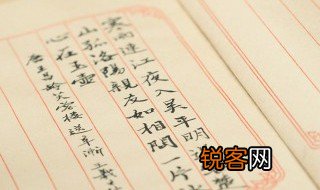 寒雨連江夜入吳平明
山孤洛陽親友如相問一片
心在玉壺
唐王昌齡芙蓉樓送辛漸
锐客网